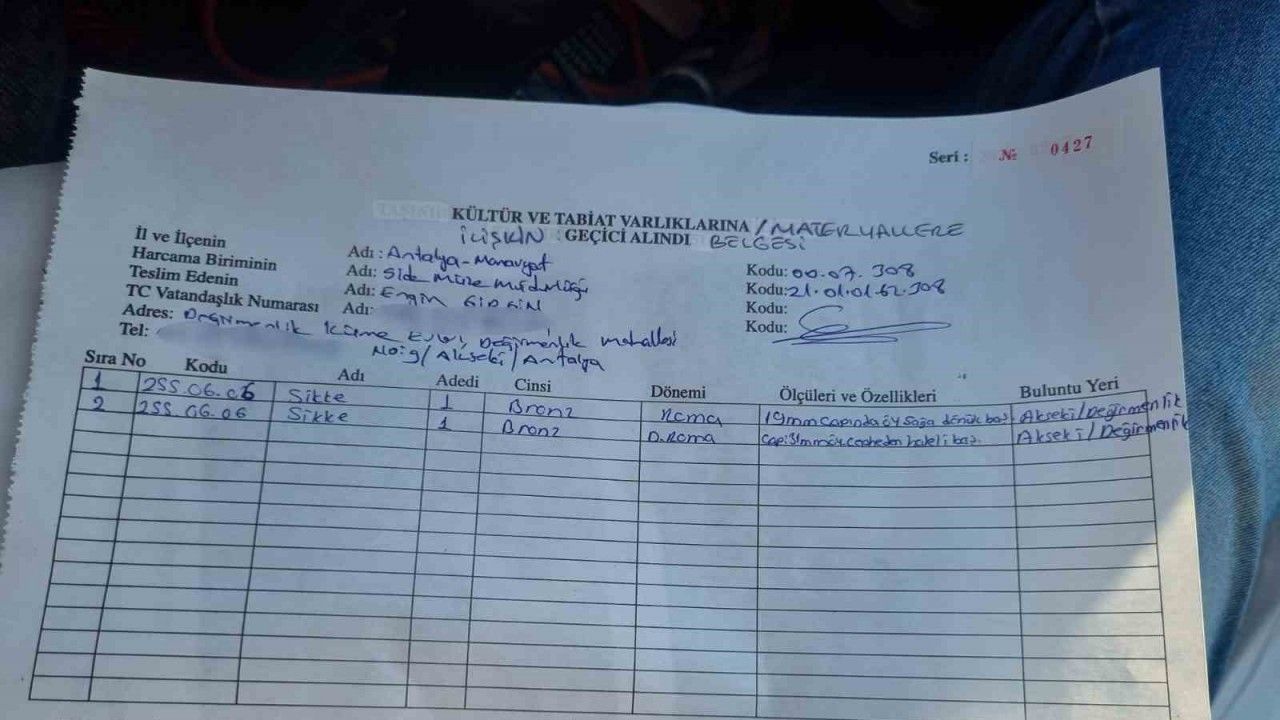 Seri : № 0427
KÜLTÜR VE TABİAT VARLIKLARINA / MATERYALLERE
İLİŞKİN GEÇİCİ ALINDI BELGESİ
İl ve İlçenin Adı : Antalya-Manavgat Kodu: 00.07.308
Harcama Biriminin Adı: Side Müze Müdürlüğü Kodu: 21.01.01.62.308
Teslim Edenin Adı: Engin Kodu:
TC Vatandaşlık Numarası Adı: Kodu:
Adres: Değirmenlik Küme Evler, Değirmenlik Mahallesi
Tel: No:9/Akseki/Antalya
Sıra No Kodu Adı Adedi Cinsi Dönemi Ölçüleri ve Özellikleri Buluntu Yeri
1 255.06.06 Sikke 1 Bronz Roma 19mm çapında öy sağa dönük baş Akseki/Değirmenlik
2 255.06.06 Sikke 1 Bronz D.Roma Çap:31mm öy. cepheden haleli baş. Akseki/Değirmenlik